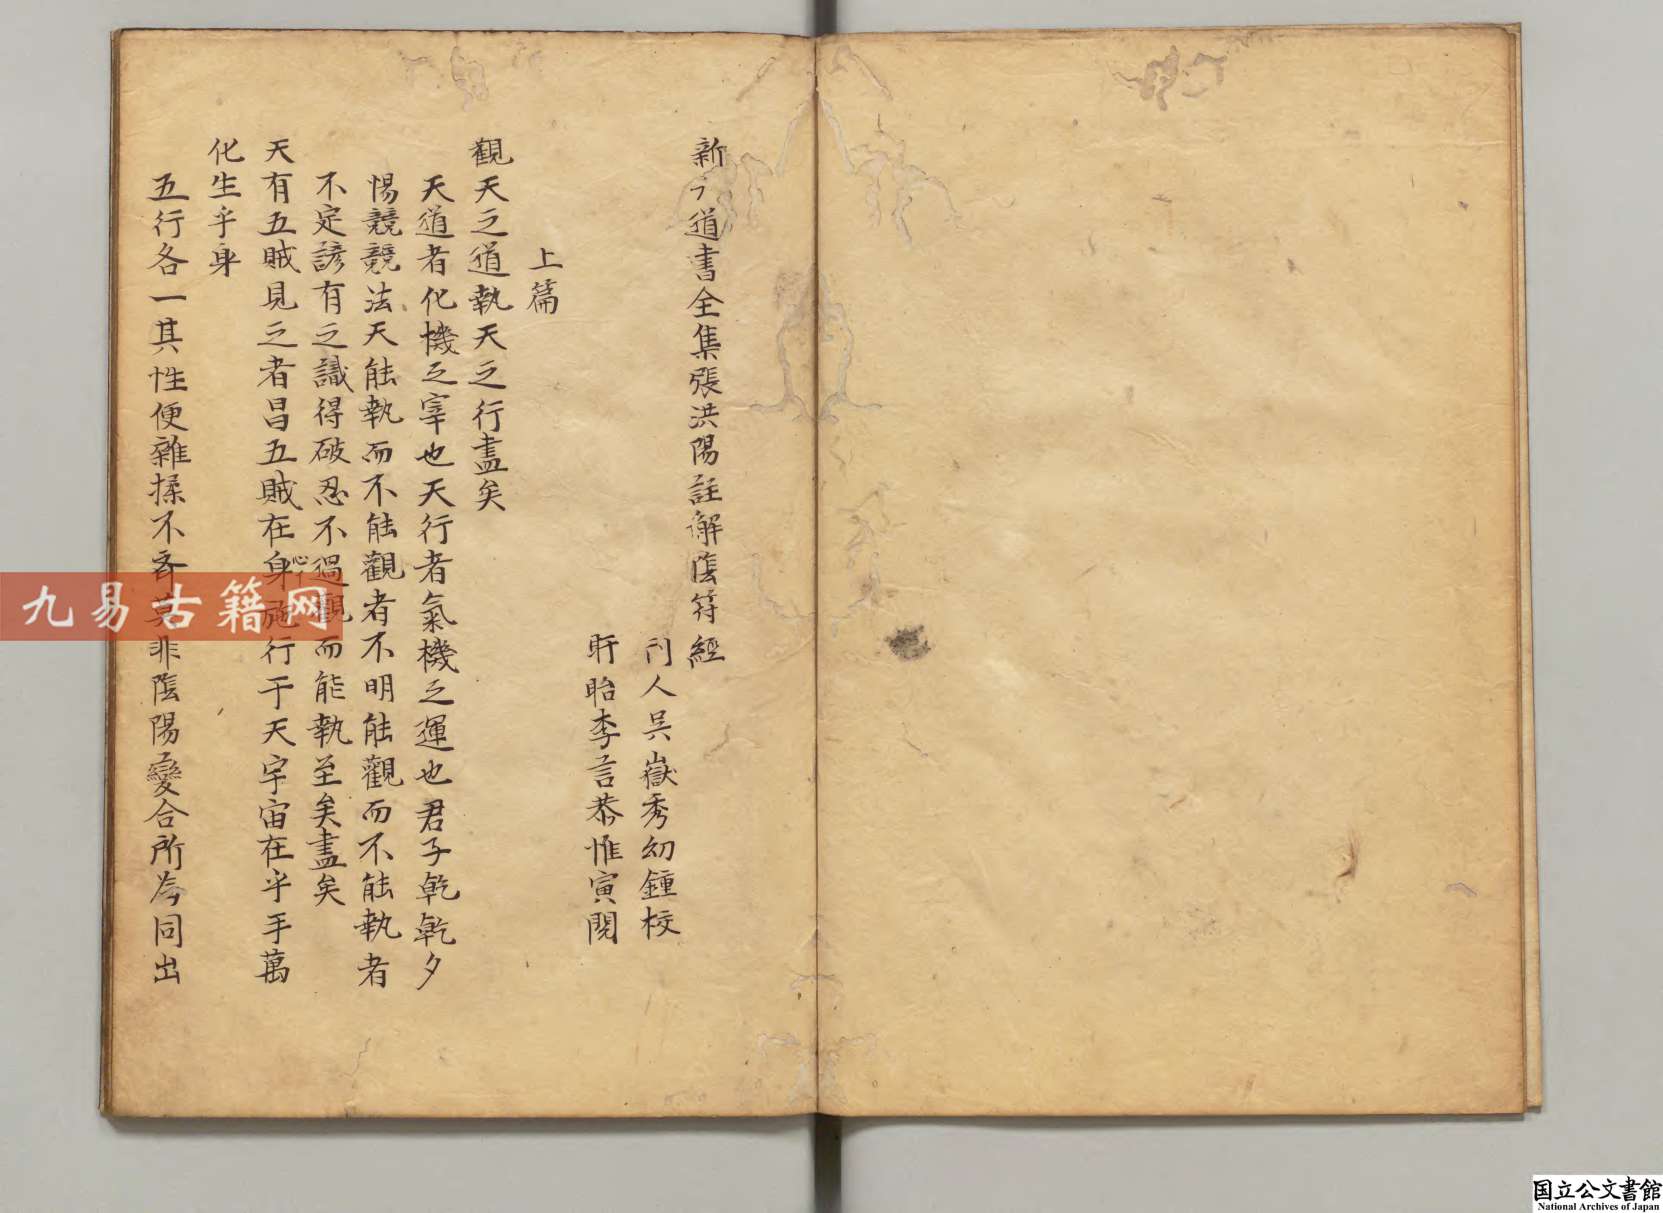 新 道書全集張洪陽註解陰符經
刊人吳嶽秀幼鍾校
盱眙李言恭惟寅閱
上篇
觀天之道執天之行盡矣
天道者化機之宰也天行者氣機之運也君子乾乾夕
惕競競法天能執而不能觀者不明能觀而不能執者
不定諺有之識得破忍不過觀而能執至矣盡矣
天有五賊見之者昌五賊在身施行于天宇宙在乎手萬
心
化生乎身
五行各一其性便雜揉不齐莫非陰陽變合所為同出
九易古籍网
国立公文書館
National Archives of Japan